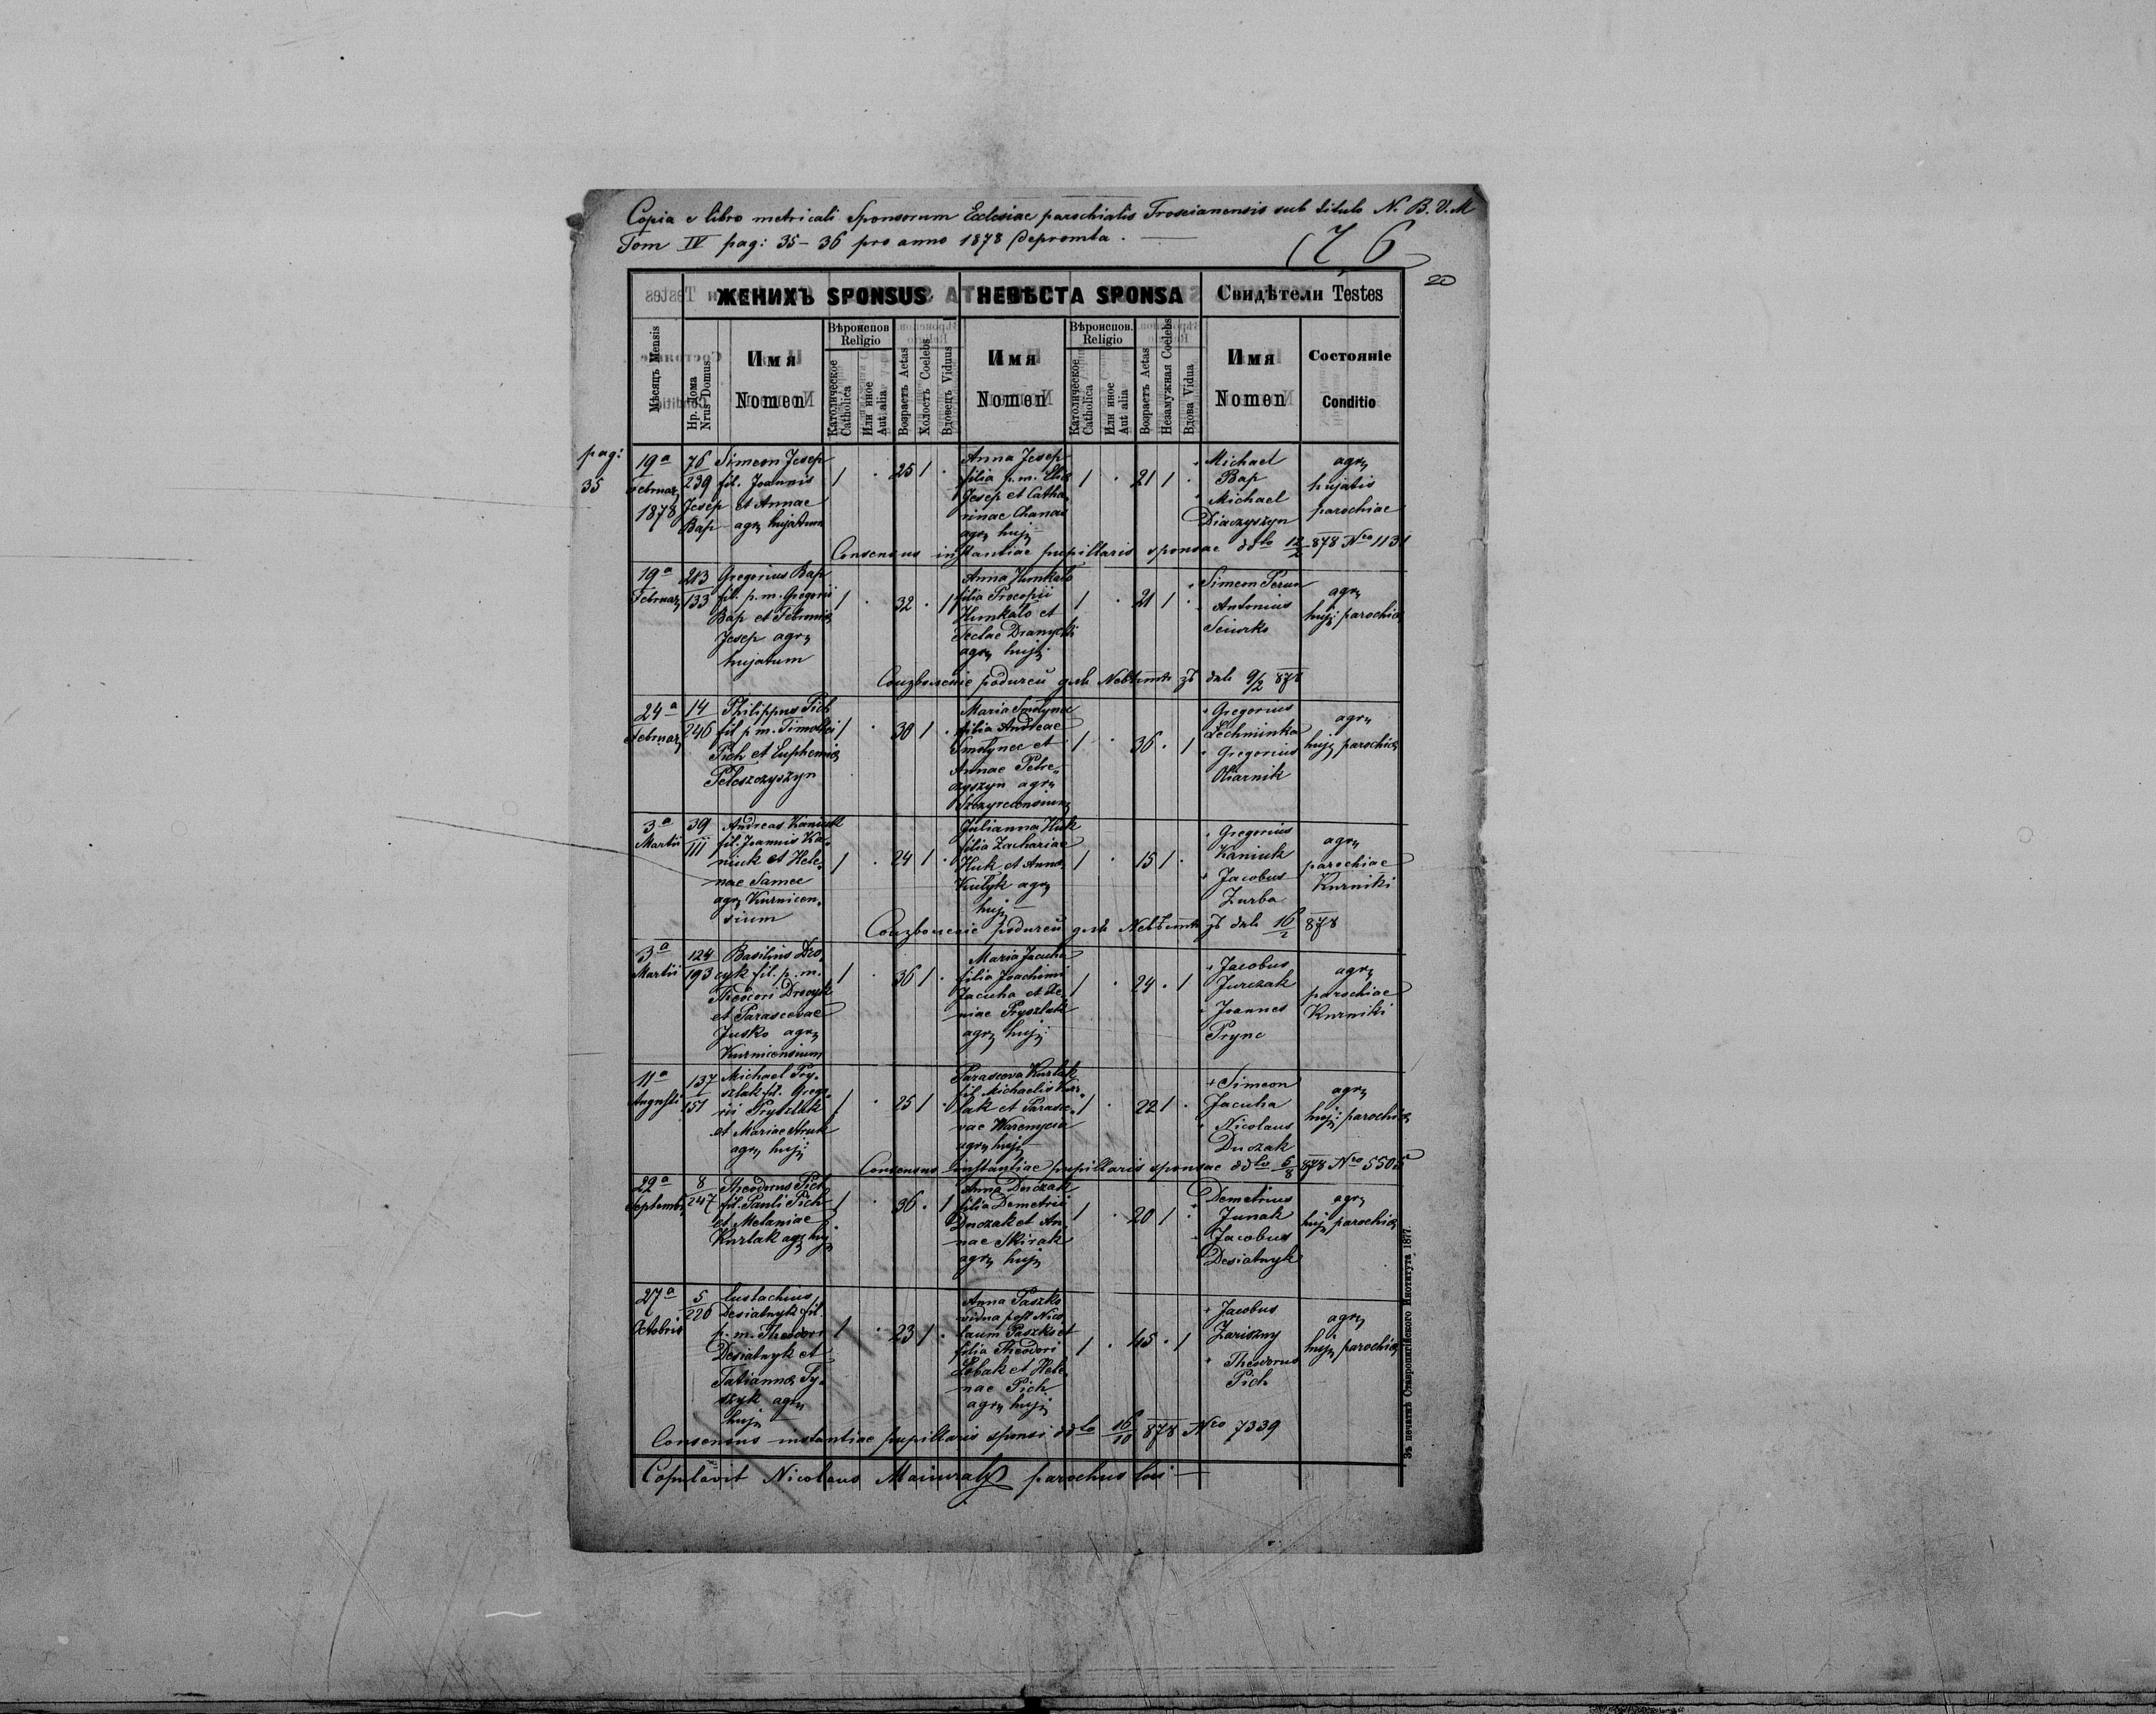 Copia e libro metricali Sponsorum Ecclesiae parochialis Troscianensis sub titulo N. B. V. M
Tom IV pag: 35-36 pro anno 1878 depromta.
76
20
ЖЕНИХЪ SPONSUS
НЕВѢСТА SPONSA
Свидѣтели Testes
Мѣсяцъ Mensis
Нр. Дома
Nrus Domus
Имя
Nomen
Вѣроиспов
Religio
Католическое
Catholica
Или иное
Aut alia
Возрастъ Aetas
Холостъ Coelebs
Вдовецъ Viduus
Имя
Nomen
Вѣроиспов.
Religio
Католическое
Catholica
Или иное
Aut alia
Возрастъ Aetas
Незамужная Coelebs
Вдова Vidua
Имя
Nomen
Состояніе
Conditio
pag:
35
19a
Februar
1878
76
239
Jesep
Bap
Simeon Jesep
fil. Joannis
et Annae
agr hujatum
1 . 25 1 .
Anna Jesep
filia p.m. Eliae
Jesep et Catha
rinae Chanas
agr huj
1 . 21 1 .
Michael
Bap
Michael
Diaczyszyn
agr
hujatis
parochiae
Consensus instantiae pupillaris sponsae ddto 12/2 878 Nro 1131
19a
Februar
213
133
Gregorius Bap
fil. p.m. Gregorii
Bap et Febroniae
Jesep agr
hujatum
1 . 32 . 1
Anna Humkalo
filia Procopii
Humkalo et
Teclae
agr huj
1 . 21 1 .
Simeon Perun
Antonius
Sciurko
agr
huj parochiae
Соизволеніе родичей для Невѣсты зъ дато 9/2 878
24a
Februar
14
246
Philippus Pich
fil p m. Timothei
Pich et Euphemiae
Peleszczyszyn
1 . 30 1 .
Maria Smolynec
filia Andreae
Smolynec et
Annae Petre
czyszyn agr
Szczyrecensium
1 . 36 . 1
Gregorius
Lechminka
Gregorius
agr
huj parochiae
3a
Martii
39
111
Andreas Kaniuk
fil. Joannis Ka
niuk et Hele
nae Samec
agr Kurnicen
sium
1 . 24 1 .
Julianna Huk
filia Zachariae
Huk et Annae
Kulyk agr
huj
1 . 15 1 .
Gregorius
Kaniuk
Jacobus
Zurba
agr
parochiae
Kurniki
Соизволеніе родичей для Невѣсты зъ дато 16/2 878
3a
Martii
124
193
Basilius Dro
cyk fil. p. m.
Theodori Drocyk
et Parascevae
Jusko agr
Kurnicensium
1 . 36 1 .
Maria Jacuha
filia Joachimi
Jacuha et Xe
niae Pryszlak
agr huj:
1 . 24 . 1
Jacobus
Jurczak
Joannes
Prync
agr
parochiae
Kurniki
11a
Augusti
137
151
Michael Pry
szlak fil. Grego
rii Pryszlak
et Mariae Hruk
agr huj:
1 . 25 1 .
Parasceva Kurlak
fil. Michaelis Kur
lak et Parasce
vae Waremycia
agr huj
1 . 22 1 .
Simeon
Jacuha
Nicolaus
Duczak
agr
huj: parochiae
Consensus instantiae pupillaris sponsae ddto 6/8 878 Nro 5505
22a
Septembr
8
247
Theodorus Pich
fil. Pauli Pich
et Melaniae
Kurlak agr huj
1 . 36 . 1
Anna Duczak
filia Demetrii
Duczak et An
nae Skirak
agr huj
1 . 20 1 .
Demetrius
Junak
Jacobus
Desiatnyk
agr
huj parochiae
27a
Octobris
5
226
Eustachius
Desiatnyk fil.
p. m. Theodori
Desiatnyk et
Tatiannae Ty
szyk agr
huj
1 . 23 1 .
Anna Paszko
vidua post Nico
laum Paszko et
filia Theodori
Lobak et Hele
nae Pich
agr huj
1 . 45 . 1
Jacobus
Zariszny
Theodorus
Pich
agr
huj parochiae
Consensus instantiae pupillaris sponsi ddto 16/10 878 Nro 7339
Copulavit Nicolaus parochus loci
Зъ печатнѣ Ставропигійского Института 1877.